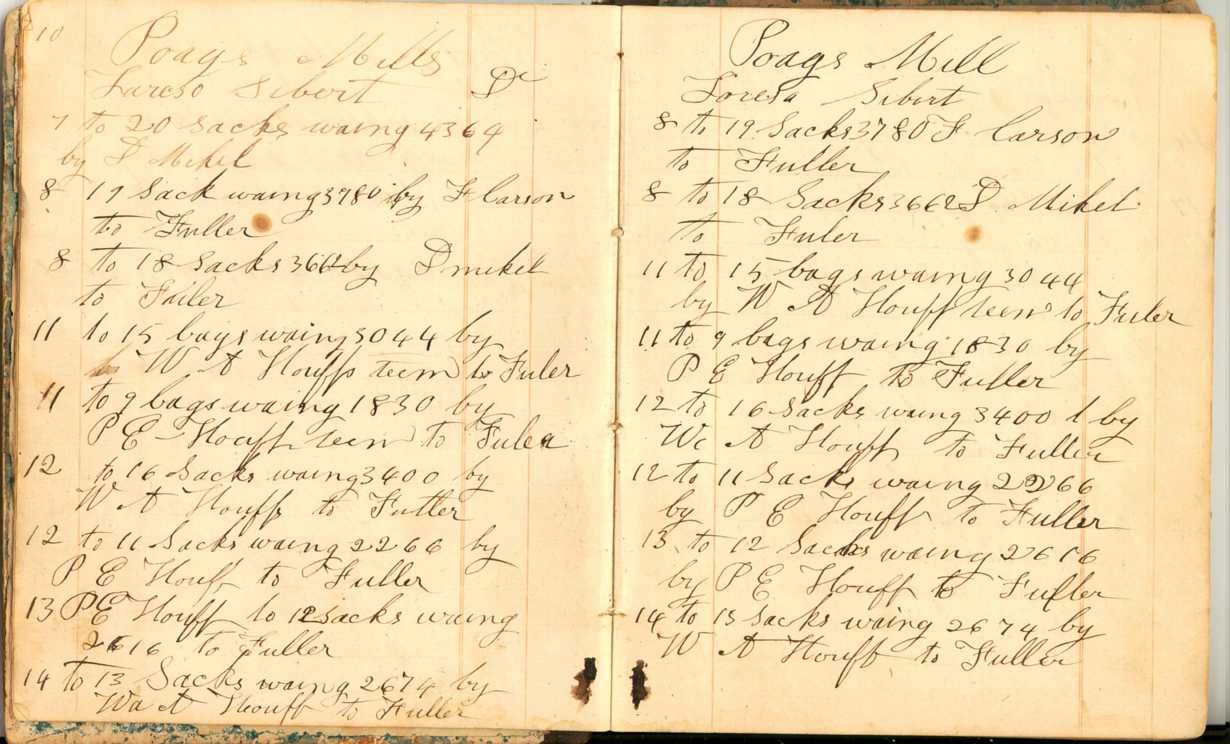 10
Poags Mills
Loreso Sibert Dr
7 to 20 Sacks waing 4364
by D Mikel
8 19 Sack waing 3780 by F Carson
to Fuller
8 to 18 Sacks 366 by D mikel
to Fuler
11 to 15 bags waing 3044 by
W A Houffs teem to Fuler
11 to 9 bags waing 1830 by
P E Houff teem to Fuler
12 to 16 Sacks waing 3400 by
W A Houffs to Fuller
12 to 11 Sacks waing 2266 by
P E Houff to Fuller
13 P E Houff to 12 Sacks waing
2616 to Fuller
14 to 13 Sacks waing 2674 by
W A Houff to Fuller
Poags Mill
Loresa Sibert
8 to 19 Sacks 3780 F Carson
to Fuller
8 to 18 Sacks 3662 D Mikel
to Fuler
11 to 15 bags waing 3044
by W A Houff teem to Fuler
11 to 9 bags waing 1830 by
P E Houff to Fuller
12 to 16 Sacks waing 3400 by
W A Houff to Fuller
12 to 11 Sacks waing 2266
by P E Houff to Fuller
13 to 12 Sacks waing 2616
by P E Houff to Fuller
14 to 13 Sacks waing 2674 by
W A Houff to Fuller